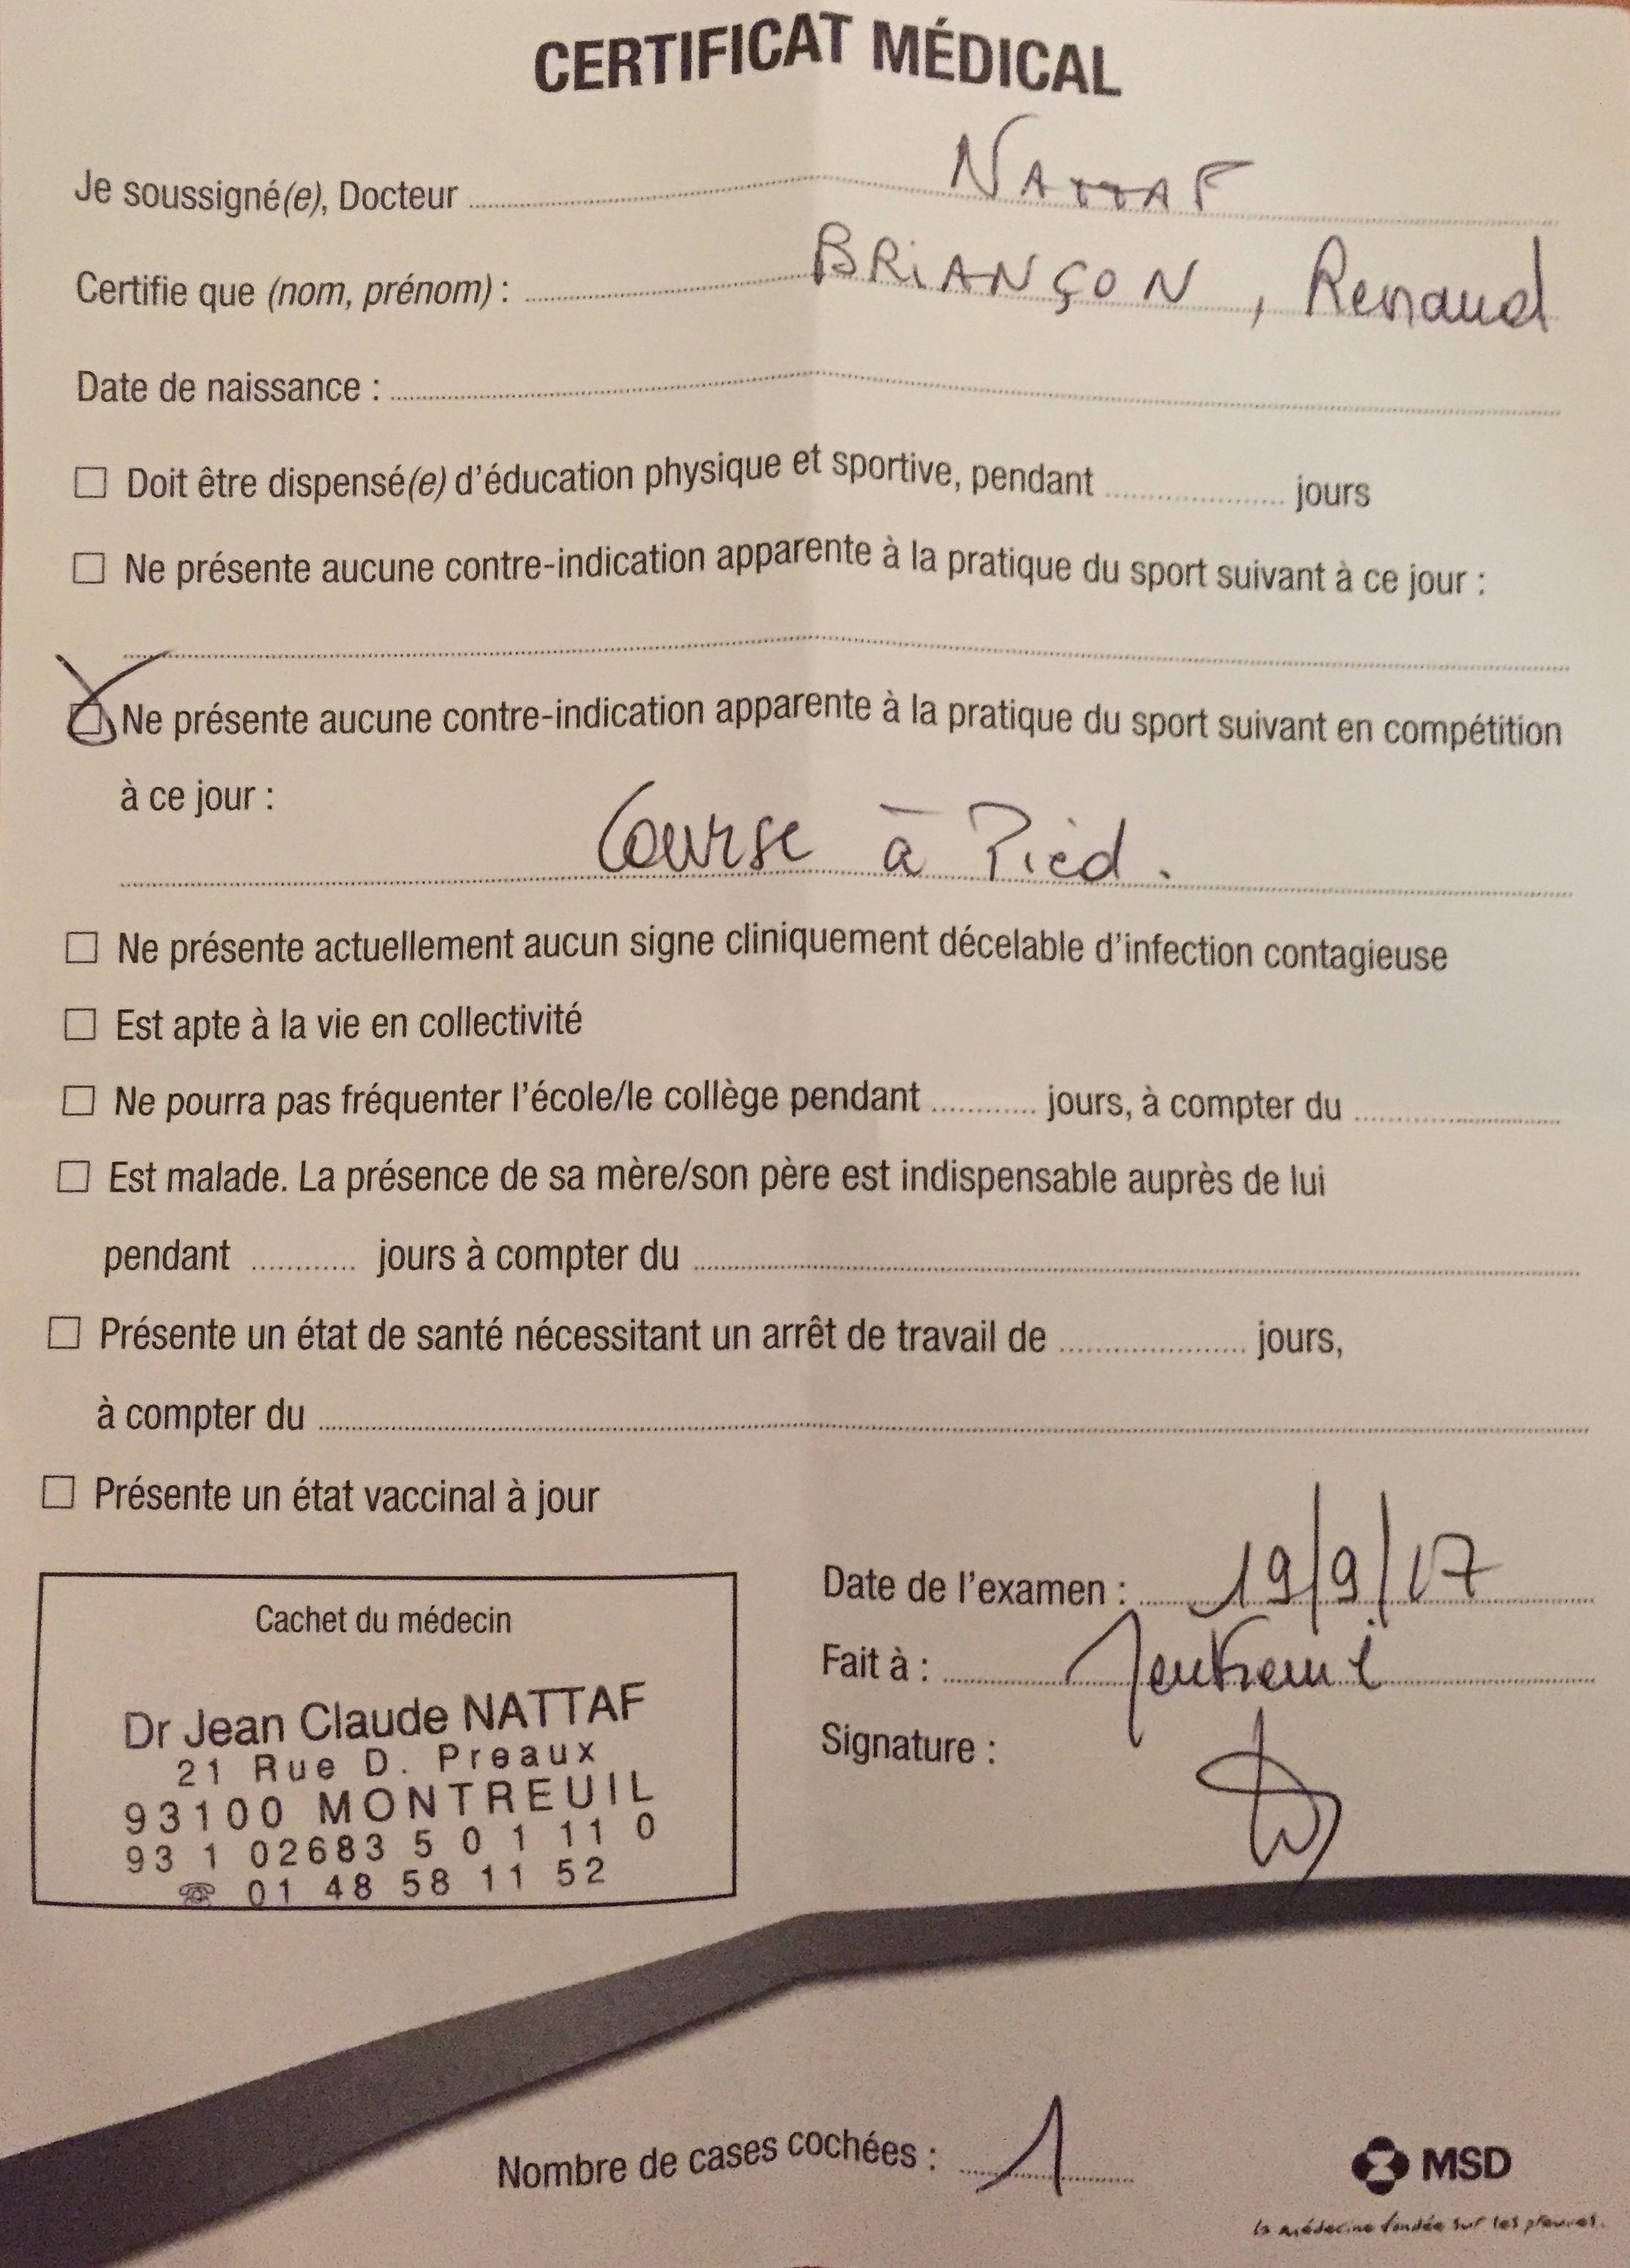 CERTIFICAT MÉDICAL
Je soussigné(e), Docteur NATTAF
Certifie que (nom, prénom) : BRIANÇON, Renaud
Date de naissance :
☐ Doit être dispensé(e) d'éducation physique et sportive, pendant jours
☐ Ne présente aucune contre-indication apparente à la pratique du sport suivant à ce jour :
☒ Ne présente aucune contre-indication apparente à la pratique du sport suivant en compétition
à ce jour :
Course à Pied.
☐ Ne présente actuellement aucun signe cliniquement décelable d'infection contagieuse
☐ Est apte à la vie en collectivité
☐ Ne pourra pas fréquenter l'école/le collège pendant jours, à compter du
☐ Est malade. La présence de sa mère/son père est indispensable auprès de lui
pendant jours à compter du
☐ Présente un état de santé nécessitant un arrêt de travail de jours,
à compter du
☐ Présente un état vaccinal à jour
Date de l'examen : 19/9/17
Fait à :
Signature :
Cachet du médecin
Dr Jean Claude NATTAF
21 Rue D. Preaux
93100 MONTREUIL
93 1 02683 5 0 1 11 0
☏ 01 48 58 11 52
Nombre de cases cochées : 1
MSD
la médecine fondée sur les preuves.